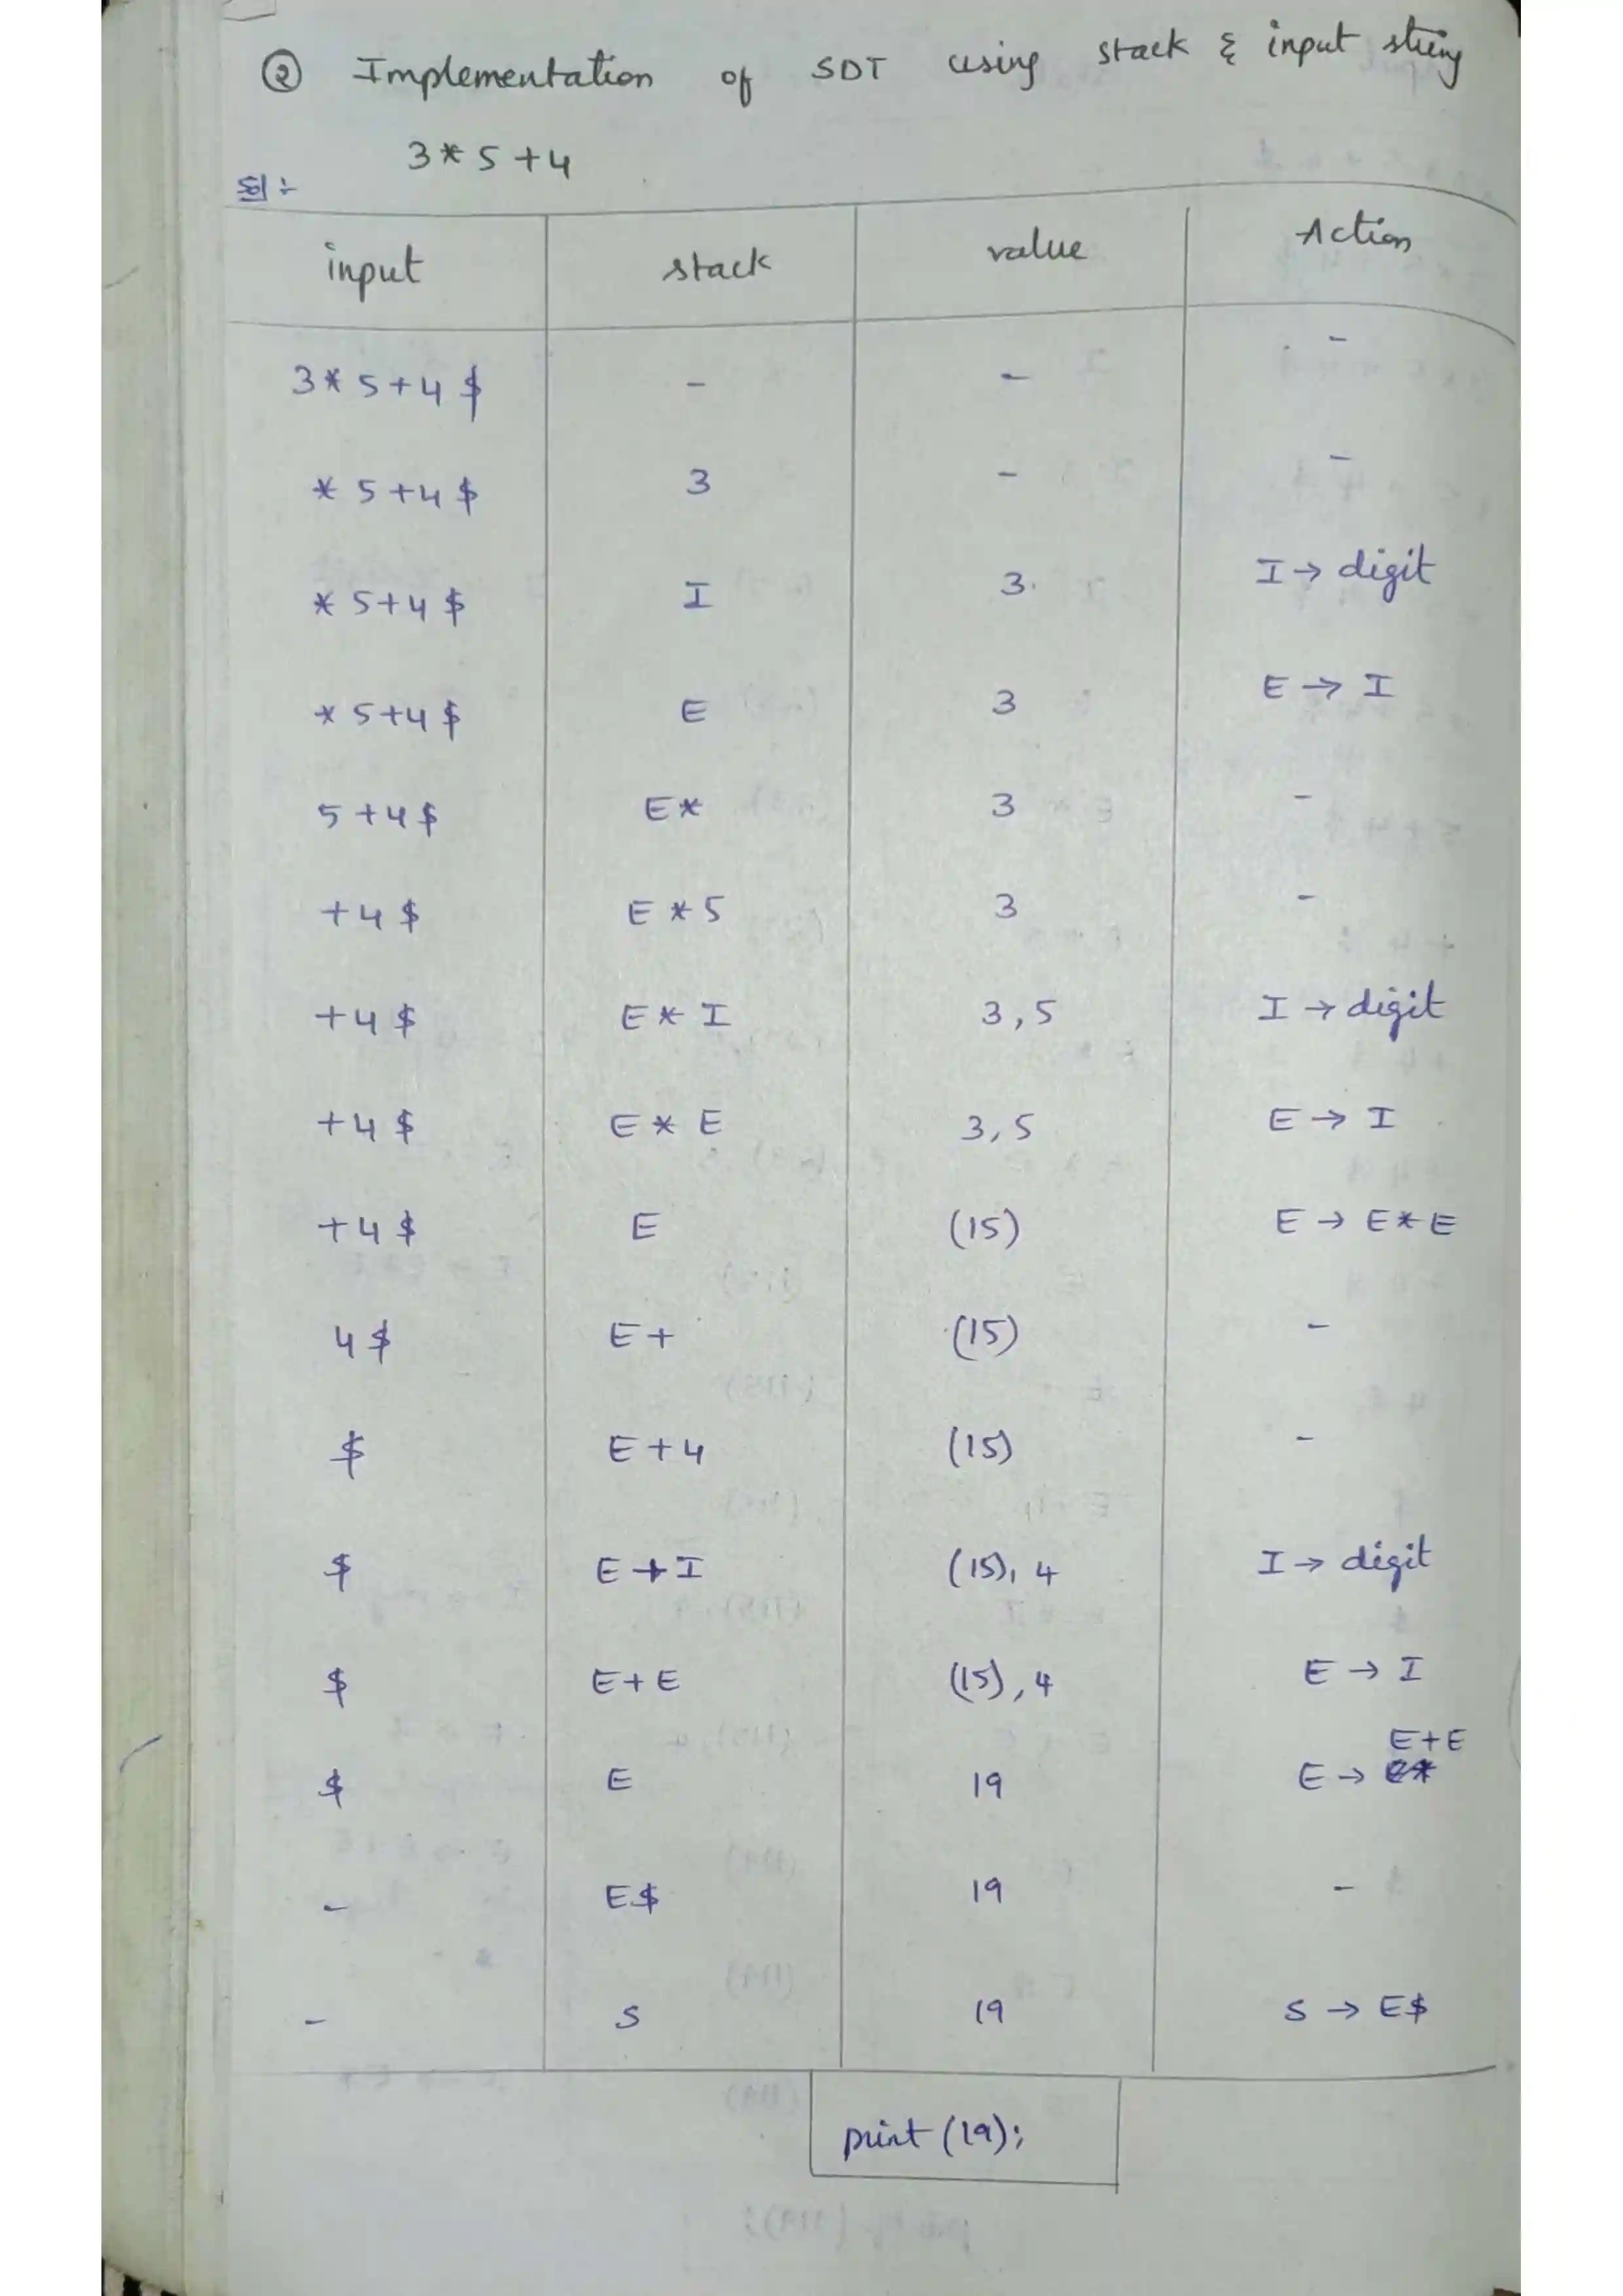 ② Implementation of SDT using stack & input string
3*5+4
Sol :-
input stack value Action
3*5+4$ - - -
*5+4$ 3 - -
*5+4$ I 3 I → digit
*5+4$ E 3 E → I
5+4$ E* 3 -
+4$ E*5 3 -
+4$ E*I 3,5 I → digit
+4$ E*E 3,5 E → I
+4$ E (15) E → E*E
4$ E+ (15) -
$ E+4 (15) -
$ E+I (15), 4 I → digit
$ E+E (15), 4 E → I
$ E 19 E → E+E
- E$ 19 -
- S 19 S → E$
print (19);